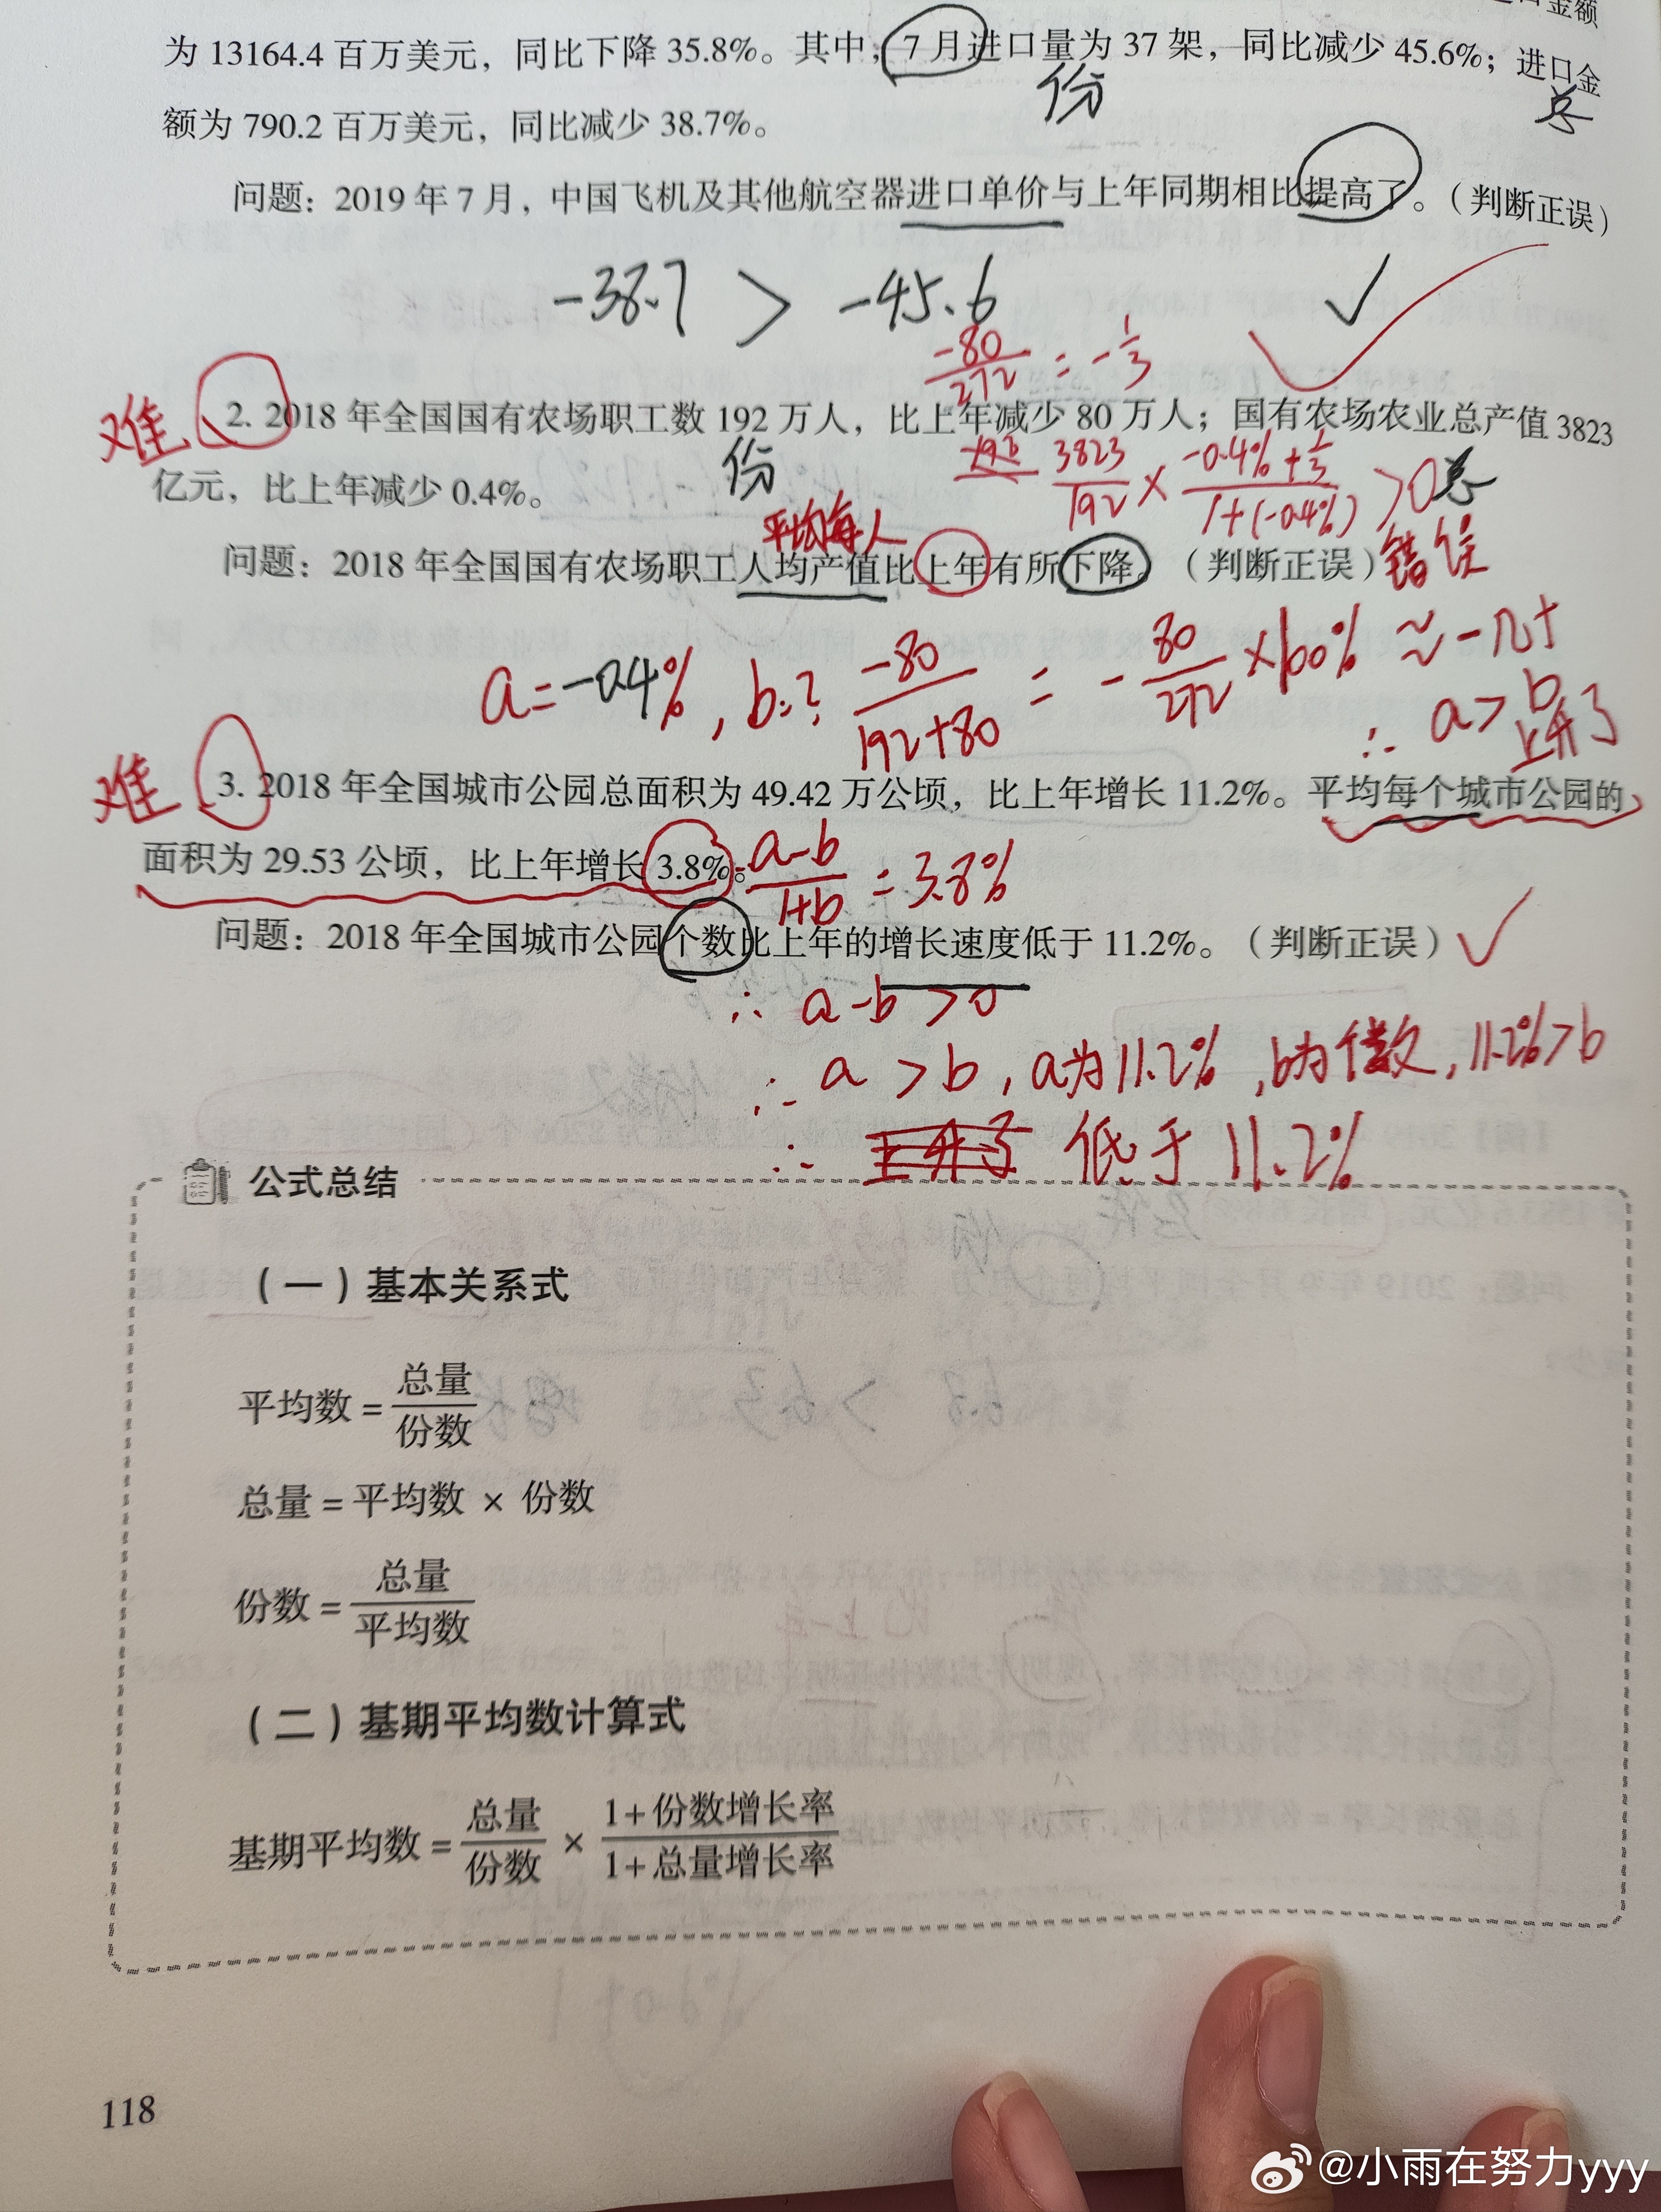 口金额
为 13164.4 百万美元，同比下降 35.8%。其中，7 月进口量为 37 架，同比减少 45.6%；进口金
份
总
额为 790.2 百万美元，同比减少 38.7%。
问题：2019 年 7 月，中国飞机及其他航空器进口单价与上年同期相比提高了。（判断正误）
-38.7 > -45.6 ✓
-80/272 = -1/3
难
2. 2018 年全国国有农场职工数 192 万人，比上年减少 80 万人；国有农场农业总产值 3823
份
3823/192 × (-0.4%+1/3)/(1+(-0.4%)) >0 总
亿元，比上年减少 0.4%。
平均每人
问题：2018 年全国国有农场职工人均产值比上年有所下降。（判断正误）错误
a=-0.4%，b=? -80/(192+80) = -80/272×100% ≈ -几十
∴ a>b
上升了
难
3. 2018 年全国城市公园总面积为 49.42 万公顷，比上年增长 11.2%。平均每个城市公园的
面积为 29.53 公顷，比上年增长 3.8%。(a-b)/(1+b) = 3.8%
问题：2018 年全国城市公园个数比上年的增长速度低于 11.2%。（判断正误）✓
∴ a-b >0
∴ a >b，a为11.2%，b为个数，11.2%>b
∴ 上升了 低于 11.2%
公式总结
（一）基本关系式
平均数=总量/份数
总量=平均数 × 份数
份数=总量/平均数
（二）基期平均数计算式
基期平均数=总量/份数 × (1+份数增长率)/(1+总量增长率)
118
@小雨在努力yyy